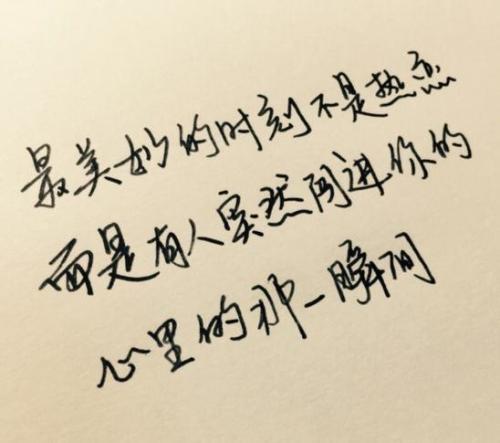 最美妙的时刻不是热恋
而是有人突然闯进你的
心里的那一瞬间